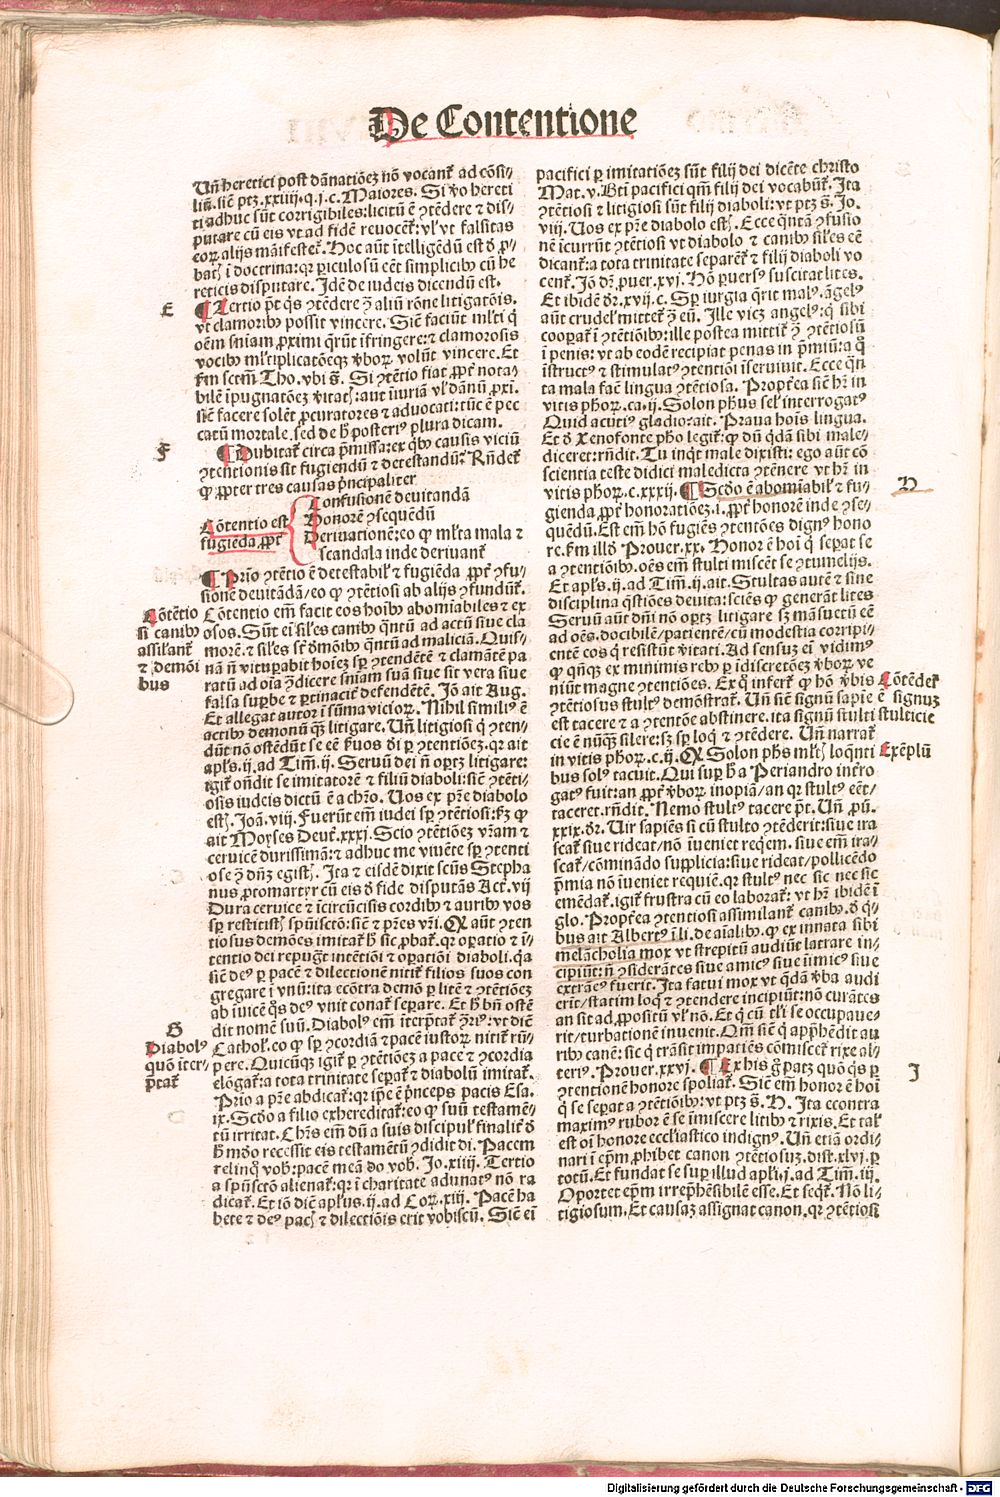 De Contentione
Uñ heretici post dãnatiõeʒ nõ vocant᷑ ad cõsi-
liũ. siẽ ptʒ. xxiiij. q. j. c. Maiores. Si ꝟo hereti
ti adhuc sũt corrigibiles: licitũ ẽ ꝯtẽdere ⁊ dis-
putare cũ eis vt ad fidẽ reuocent᷑: vl᷑ vt falsitas
eoꝝ alijs mãifestet᷑. Hoc aũt ĩtelligẽdũ est ð ꝓ-
bat᷑ ĩ doctrina: qꝛ ꝑiculosũ eẽt simplicibꝰ cũ he
reticis disputare. Idẽ de iudeis dicendũ est.
E
¶ Tertio põt qs ꝯtẽdere ꝯ̃ aliũ rõne litigatõis.
vt clamoribꝰ possit vincere. Siẽ faciũt ml᷑ti q̇
oẽm sniam ꝓximi qrũt ĩfringere: ⁊ clamorosis
vocibꝰ ml᷑tiplicatõeqꝫ ꝟboꝝ volũt vincere. Et
fm sctm̃ Tho. vbi s̃. Si ꝯtẽtio fiat ꝓpt᷑ nota-
bilẽ ĩpugnatõeʒ ꝟitat᷑: aut ĩiuriã vl᷑ dãnũ ꝓxi.
siẽ facere solẽt ꝓcuratores ⁊ aduocati: tũc ẽ pec
catũ mortale. sed de h̃ posteriꝰ plura dicam.
F
¶ Dubitat᷑ circa p̃missa: ex qbꝰ causis viciũ
ꝯtentionis sit fugiendũ ⁊ detestandũ: Rñdet᷑
ꝙ ꝓpter tres causas p̃ncipaliter
Cõtentio est
fugiẽda ꝓpt᷑
Confusionẽ deuitandã
Honorẽ ꝯseqẽdũ
Deriuationẽ: eo ꝙ ml᷑ta mala ⁊
scandala inde deriuant᷑
¶ Prĩo ꝯtẽtio ẽ detestabil᷑ ⁊ fugiẽda ꝓpt᷑ ꝯfu-
sionẽ deuitãdã / eo ꝙ ꝯtẽtiosi ab alijs ꝯfundũt᷑.
Cõtẽtio
si canibꝰ
assilant᷑
⁊ demõi
bus
Cõtentio em̃ facit eos hoĩbꝰ abomiabiles ⁊ ex
osos. Sũt ei siles canibꝰ qntũ ad actũ siue cla
morẽ. ⁊ siles st᷑ ð̃mõibꝰ qntũ ad maliciã. Quis-
nã ñ vituꝑabit hoĩeʒ sp̃ ꝯtendẽtẽ ⁊ clamãtẽ pa
ratũ ad oĩa ꝯ̃dicere sniam suã siue sit vera siue
falsa suꝑbe ⁊ ꝑtinacit᷑ defendẽtẽ. Jõ ait Aug.
Et allegat autor ĩ sũma vicioꝝ. Nihil similiꝰ ẽ
actibꝰ demonũ qʒ litigare. Uñ litigiosi q̇ ꝯten-
dũt nõ ostẽdũt se eẽ ẽuos ð̃i ꝑ ꝯtentiõeʒ. qꝛ ait
apl᷑s. ij. ad Tim̃. ij. Seruũ dei ñ oꝑtʒ litigare:
igit᷑ oñdit se imitatorẽ ⁊ filiũ diaboli: siẽ ꝯtẽti-
osis iudeis dictũ ẽ a chr̃o. Uos ex p̃re diabolo
est᷑. Joã. viij. Fuerũt em̃ iudei sp̃ ꝯtẽtiosi: fʒ ꝙ
ait Moyses Deut᷑. xxxj. Scio ꝯtẽtiõeʒ vr̃am ⁊
ceruicẽ durissimã: ⁊ adhuc me viuẽte sp̃ ꝯtenti
ose ꝯ̃ dñʒ egist᷑. Ita ⁊ eisdẽ dixit scũs Stepha
nus ꝓtomartyr cũ eis ð fide disputãs Act᷑. vij
Dura ceruice ⁊ ĩcircũcisis cordibꝰ ⁊ auribꝰ vos
sp̃ restitist᷑ spũiscto: siẽ ⁊ p̃res vr̃i. Qꝫ aũt ꝯten
tiosus demões imitat᷑ h̃ sic ꝓbat᷑. qꝛ oꝑatio ⁊ ĩ-
tentio dei repugt᷑ intẽtiõi ⁊ oꝑatiõi diaboli. qꝛ
siẽ deꝰ ꝑ pacẽ ⁊ dilectionẽ nitit᷑ filios suos con
gregare ĩ vnũ: ita ecõtra demõ ꝑ litẽ ⁊ ꝯtẽtiõeʒ
ab ĩuicẽ qs deꝰ vnit conat᷑ separe. Et h̃ bñ ostẽ
G
Diabolꝰ
quõ iter-
p̃tat᷑
dit nomẽ suũ. Diabolꝰ em̃ iterp̃tat᷑ ꝯ̃riꝰ: vt diẽ
Cathol᷑. eo ꝙ sp̃ ꝯcordiã ⁊ pacẽ iustoꝝ nitit᷑ rũ-
pere. Quicũqꝫ igit᷑ ꝑ ꝯtẽtiõeʒ a pace ⁊ ꝯcordia
elõgat᷑: a tota trinitate sepat᷑ ⁊ diabolũ imitat᷑.
Prĩo a p̃re abdicat᷑: qꝛ ip̃e ẽ p̃nceps pacis Esa.
ix. Scðo a filio exhereditat᷑: eo ꝙ suũ testamẽ-
tũ irritat. Chr̃s em̃ dũ a suis discipul᷑ finalit᷑ ð
h̃ mũdo recessit eis testamẽtũ ꝯdidit di. Pacem
relinq̃ vob᷑: pacẽ meã do vob᷑. Jo. xiiij. Tertio
a spũscto alienat᷑: qꝛ ĩ charitate adunatꝰ nõ ra
dicat᷑. Et iõ diẽ apl᷑us. ij. ad Coꝝ. xiij. Pacẽ ha
bete ⁊ deꝰ pac᷑ ⁊ dilectiõis erit vobiscũ. Siẽ eĩ
pacifici ꝑ imitatiõeʒ sũt filij dei dicẽte christo
Mat. v. Bt̃i pacifici qm̃ filij dei vocabũt᷑. Ita
ꝯtẽtiosi ⁊ litigiosi sũt filij diaboli: vt ptʒ s̃. Jo.
viij. Uos ex p̃re diabolo est᷑. Ecce qntã ꝯfusio
nẽ icurrũt ꝯtẽtiosi vt diabolo ⁊ canibꝰ siles eẽ
dicant᷑: a tota trinitate separẽt᷑ ⁊ filij diaboli vo
cent᷑. Jõ dr̃ puer. xvj. Hõ ꝑuersꝰ suscitat lites.
Et ibidẽ dr̃. xvij. c. Sp̃ iurgia qrit malꝰ. ãgelꝰ
aũt crudel᷑ mittet᷑ ꝯ̃ eũ. Ille vicʒ angelꝰ: q̇ sibi
cooꝑat᷑ ĩ ꝯtẽtiõibꝰ: ille postea mittit᷑ ꝯ̃ ꝯtẽtiosũ
ĩ penis: vt ab eodẽ recipiat penas in p̃miũ: a q̃
ĩstructꝰ ⁊ stimulatꝰ ꝯtẽtiõi ĩseruiuit. Ecce qñ
ta mala fac᷑ lingua ꝯtẽtiosa. Propt᷑ea siẽ hr̃ in
vitis ph̃oꝝ. ca. ij. Solon ph̃us sel᷑ interrogatꝰ
Quid acutiꝰ gladio: ait. Praua hoĩs lingua.
Et ð Xenofonte ph̃o legit᷑: ꝙ dũ q̇dã sibi male-
diceret: rñdit. Tu inqt male dixisti: ego aũt cõ
scientia teste didici maledicta ꝯtẽnere vt hr̃ in
H
vitis ph̃oꝝ. c. xxxij. ¶ Scðo ẽ abomiabil᷑ ⁊ fu-
gienda ꝓpt᷑ honoratiõeʒ. i. ꝓpt᷑ honorẽ inde ꝯse-
quẽdũ. Est em̃ hõ fugiẽs ꝯtentões dignꝰ hono
re. fm illð Prouer. xx. Honor ẽ hoĩ q̇ seꝑat se
a ꝯtentiõibꝰ. oẽs em̃ stulti miscẽt se ꝯtumelijs.
Et apl᷑s. ij. ad Tim̃. ij. ait. Stultas autẽ ⁊ sine
disciplina q̃stiões deuita: sciẽs ꝙ generãt lites
Seruũ aũt dñi nõ oꝑtʒ litigare sʒ mãsuetũ eẽ
ad oẽs. docibilẽ / patientẽ / cũ modestia corripi-
entẽ eos q̇ resistũt ꝟitati. Ad sensuʒ ei vidimꝰ
ꝙ qñqꝫ ex minimis rebꝰ ꝑ ĩdiscretõeʒ ꝟboꝝ ve
niũt magne ꝯtentiões. Ex q̃ infert᷑ ꝙ hõ ꝟbis
ꝯtẽtiosus stultꝰ demõstrat᷑. Uñ siẽ signũ sapie ẽ
est tacere ⁊ a ꝯtentõe abstinere. ita signũ stulti
cie ẽ nũqʒ silere: sʒ sp̃ loq̃ ⁊ ꝯtẽdere. Uñ narrat᷑
Cõtẽdet᷑
signuʒ
stulticie
Exẽplũ
in vitis ph̃oꝝ. c. ij. Qꝫ Solon ph̃s ml᷑t᷑ loq̃nti
bus solꝰ tacuit. Qui suꝑ h̃ a Periandro inter̃ro
gatꝰ fuit: an ꝓpt᷑ ꝟboꝝ inopiã / an qꝛ stultꝰ eẽt /
taceret. rñdit. Nemo stultꝰ tacere põt. Uñ ꝓũ.
xxix. dr̃. Uir sapiẽs si cũ stulto ꝯtẽderit: siue ira
scat᷑ siue rideat / nõ ĩueniet reqẽm. siue em̃ ira-
scat᷑ / cõminãdo supplicia: siue rideat / pollicẽdo
p̃mia nõ ĩueniet requiẽ. qꝛ stultꝰ nec sic nec sic
emẽdat᷑. igit᷑ frustra cũ eo laborat᷑: vt hr̃ ibidẽ ĩ
glo. Propt᷑ea ꝯtentiosi assimilant᷑ canibꝰ. ð q̃-
bus ait Albertꝰ ĩ li. de aĩalibꝰ. ꝙ ex innata sibi
melãcholia mox vt strepitũ audiũt latrare in-
cipiũt: ñ ꝯsiderãtes siue amicꝰ siue inimicꝰ siue
extraneꝰ fuerit. Ita fatui mox vt q̇dã ꝟba audi
erĩt / statim loq̃ ⁊ ꝯtendere incipiũt: nõ curãtes
an sit ad ꝓpositũ vl᷑ nõ. Et q̇ cũ tl᷑i se occupaue-
rit / turbationẽ inuenit. Qm̃ siẽ q̇ app̃hẽdit au
ribꝰ canẽ: sic q̇ trãsit impatiẽs cõmiscet᷑ rixe al-
J
teriꝰ. Prouer. xxvj. ¶ Ex his g̃ patʒ quõ qs ꝑ
ꝯtentionẽ honore spoliat᷑. Siẽ em̃ honor ẽ hoĩ
q̇ se seꝑat a ꝯtẽtiõibꝰ: vt ptʒ s̃. H. Ita econtra
maximꝰ rubor ẽ se ĩmiscere litibꝰ ⁊ rixis. Et tal᷑
est oĩ honore eccl᷑iastico indignꝰ. Uñ etiã ordi-
nari ĩ ep̃m ꝓhibet canon ꝯtẽtiosuʒ. dist. xlvj. ꝑ
totũ. Et fundat se suꝑ illud apl᷑i. j. ad Tim̃. iij.
Oportet ep̃m irrep̃hẽsibilẽ esse. Et seqt᷑. Nõ li-
tigiosum. Et causaʒ assignat canon. qꝛ ꝯtẽtiosi
Digitalisierung gefördert durch die Deutsche Forschungsgemeinschaft - DFG